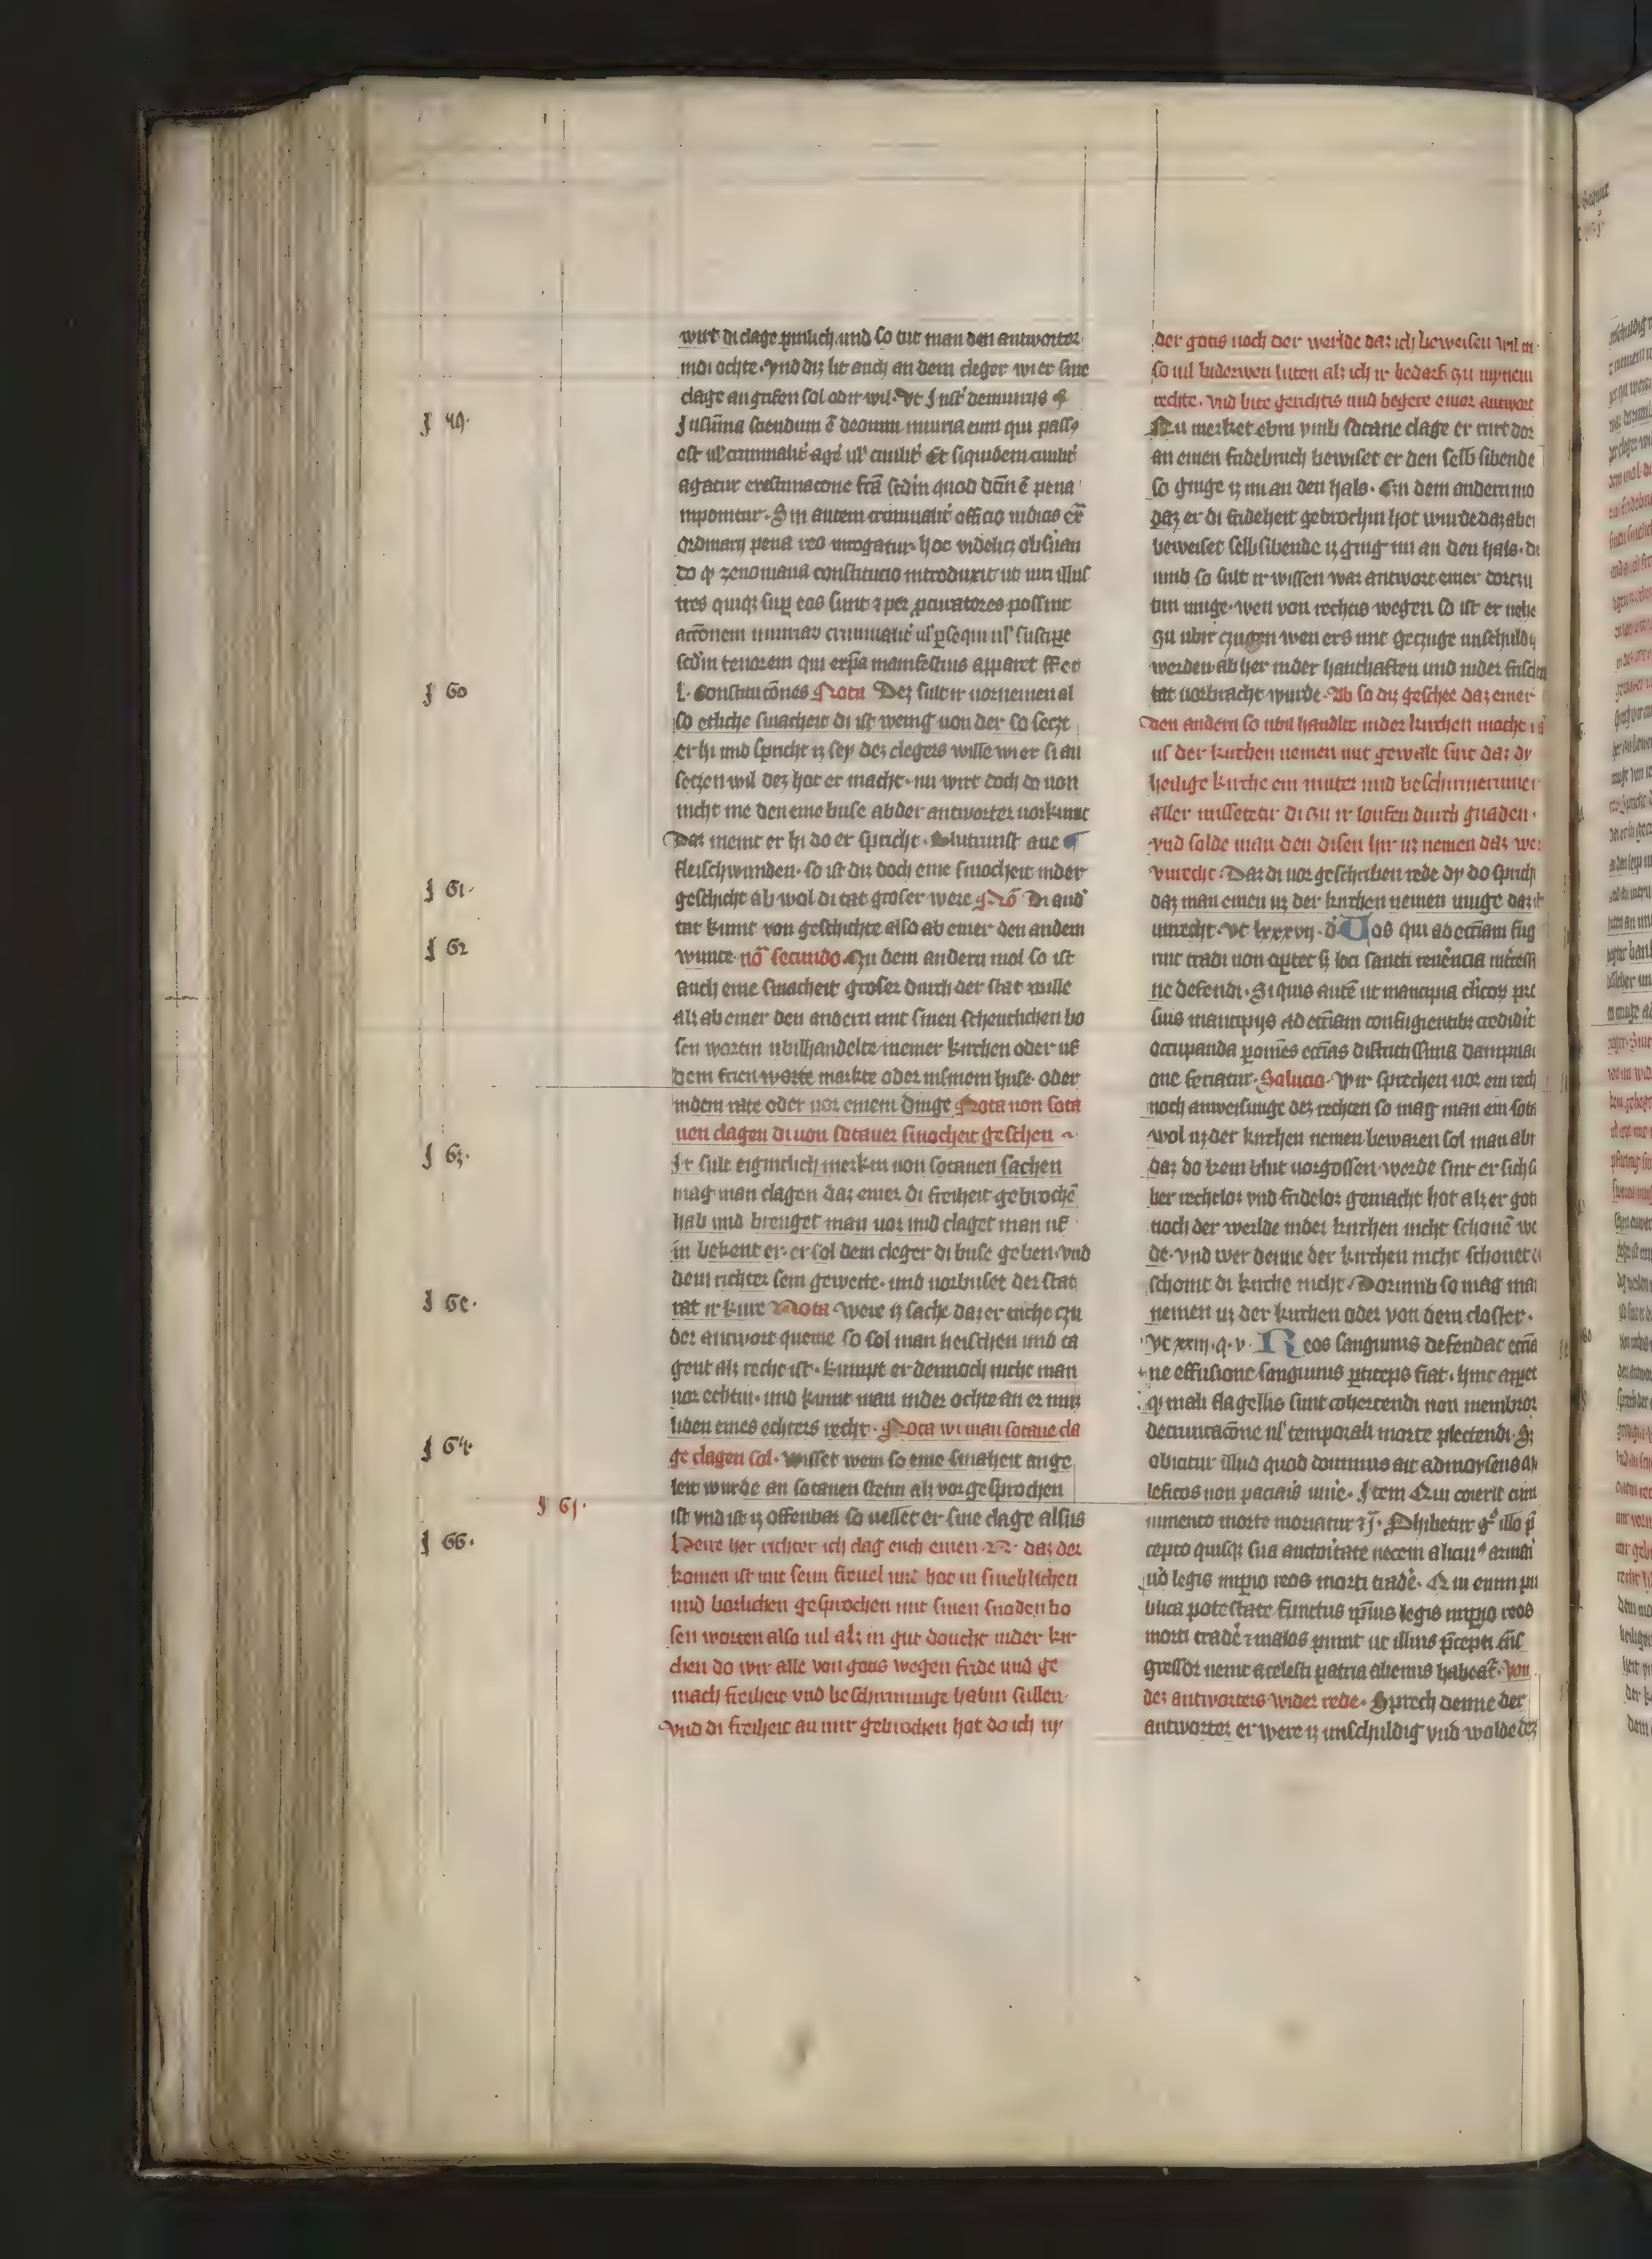 wirt di clage pinlich und so tut man den antworter
indi ochte. vnd diz lit auch an dem cleger wi er sine
clage an grifen sol odir wil. Vt Justi de iniuriis §
§ 49.
Jn su᷑ma sciendum ē de omni iniuria eum qui passꝰ
est ul' criminalit᷑ age᷑ ul' ciuilit᷑ Et siquidem ciuilit᷑
agatur extimacone fc̄a scd̄m quod dc̄m ē pena
inponitur. Sin autem criminalit᷑ officio iudicis ex̄
ordinarij pena reo irrogatur. hoc videlicz obs᷑uan
do qͥ zenoniana constitucio introduxit ut uiri illus
tres quiqꝫ sup̱ eos sunt ⁊ per ꝓcuratores possint
accōnem iniuriar᷑ criminalit᷑ ul' ꝑsequi ul' suscipe
scd̄m tenorem qui ex ip̄a manifestius apparet
§ 60
l. Constitucōnes Nota Dez sult ir uornemen al
so etliche smacheit di ist wenig uon der so seczt
er hi und spricht iz sey dez clegers wille wi er si an
seczen wil dez hot er macht. nu wirt doch do uon
nicht me den eine buse ab der antworter uorkumt
Daz meint er hi do er spricht. Blutrunst ane
fleischwunden. so ist diz doch eine smocheit in der
§ 61.
geschicht ab wol di tat groser were Nō Di and᷑
tat kumt von geschichte also ab einer den andern
§ 62
wunte nō secundo. Zu dem andern mol so ist
auch eine smacheit groser durch der stat wille
alz ab einer den andern mit sinen scheutlichen bo
sen wortin ubilhandelte in einer kirchen oder uf
dem frien worte markte oder in sinem huse. oder
in dem rate oder uor einem dinge Nota uon sota
nen clagen di uon sotaner smocheit geschen
§ 63.
Jr sult eigintlich merkin uon sotanen sachen
mag man clagen daz einer di friheit gebrochē
hab und brenget man uor und claget man uf
in bekent er. er sol dem cleger di buse geben. vnd
dem richter sein gewette. und uorbuset der stat
§ 6e.
rat ir kure Nota Were iz sache daz er nicht czu
der antwort queme so sol man heischen und ta
gent alz recht ist. kumpt er dennoch nicht man
uor echtin. und kumt man in der ochte an er muz
liden eines echters recht. Nota wi man sotane cla
§ 64.
ge clagen sol. Wisset wem so eine smaheit ange
leit wurde an sotanen stetin alz vor gesprochen
§ 65.
ist vnd ist iz offenbar so uellet er sine clage alsus
§ 66.
Herre her richter ich clag euch einen .N. daz der
komen ist mit seim freuel und hot in smehlichen
und boslichen gesprochen mit sinen snoden bo
sen worten also uil alz in gut doucht in der kir
chen do wir alle von gotis wegen fride und ge
mach friheit vnd beschirmunge habin sullen.
vnd di friheit an mir gebrochen hot do ich in
der gotis noch der werlde daz ich beweisen wil m
so uil biderwen luten alz ich ir bedarf zu mynem
rechte. vnd bite gerichtis und begere einer antwort
Nu merket ebin vmb sotane clage er rurt dor
an einen fridebruch bewiset er den selb sibende
so ginge iz im an den hals. Czu dem andern mo
daz er di friheheit gebrochin hot wurde daz abe
beweiset selbsibende iz ging im an den hals. do
umb so sult ir wissen waz antwort einer dorczu
tun muge. wen von rechtis wegen so ist er nehe
zu ubir czugen wen ers mit geczuge unschuldig
werden ab her in der hanthaften und in der frischen
tat uorbracht wurde. Ab so diz geschee daz einer
den andern so ubil handilt in der kirchen mochte
uf der kirchen nemen mit gewalt sint daz dy
heilige kirche ein muter und beschirmerinne
aller missetetir di zu ir loufen durch gnaden.
vnd solde man den disen hir uz nemen daz wer
vnrecht. Daz di uor geschriben rede dy do sprich
daz man einen uz der kirchen nemen muge daz it
unrecht. Vt lxxxvij. d Eos qui ad ecc̄iam fug
rint tradi non oportet sꝫ loci sancti reuerēncia
ne defendi. Si quis autē ut mancipia cl̄icor᷑ pre
suis mancipijs ad ecc̄iam confugientibꝫ crediderit
occupanda ꝑ omēs ecc̄ias districtissima dampnaci
one feriatur. Solucio. Wir sprechen uor ein recht
noch anweisunge dez rechten so mag man ein sota
wol uz der kirchen nemen bewaren sol man abir
daz do kein blut uorgossen werde sint er sich
ber rechteloz vnd fridloz gemacht hot alz er goti
noch der werlde in der kirchen nicht schonē wo
de. vnd wer denne der kirchen nicht schonet
schont di kirche nicht. Dorumb so mag man
nemen uz der kirchen oder von dem closter.
Vt xxiij. q. v. Reos sanguinis defendat ecc̄ia
ne effusione sanguinis ꝑticeps fiat. hinc appet
qͥ mali flagellis sunt cohercendi non membror᷑
detruncacōne ul' temporali morte plectendi. Sꝫ
obicitur illud quod dominus ait ad moysen
leficos non paciaris uiue᷑. Jtem Qui coierit cum
iumento morte moriatur ⁊ c̄. Phibetur gͦ illo p̄
cepto quisqꝫ sua auctoritate necem alicuiꝰ armari
nō legis imp̱io reos morti trade᷑. Qui enim pu
blica potestate functus ip̄ius legis imp̱io reos
morti trade᷑ ⁊ malos punit ut illius p̄cepti tn̄s
gressor nec a celesti patria alienus habeat᷑. Von
dez antworters wider rede. Sprech denne der
antworter er were iz unschuldig vnd wolde dez